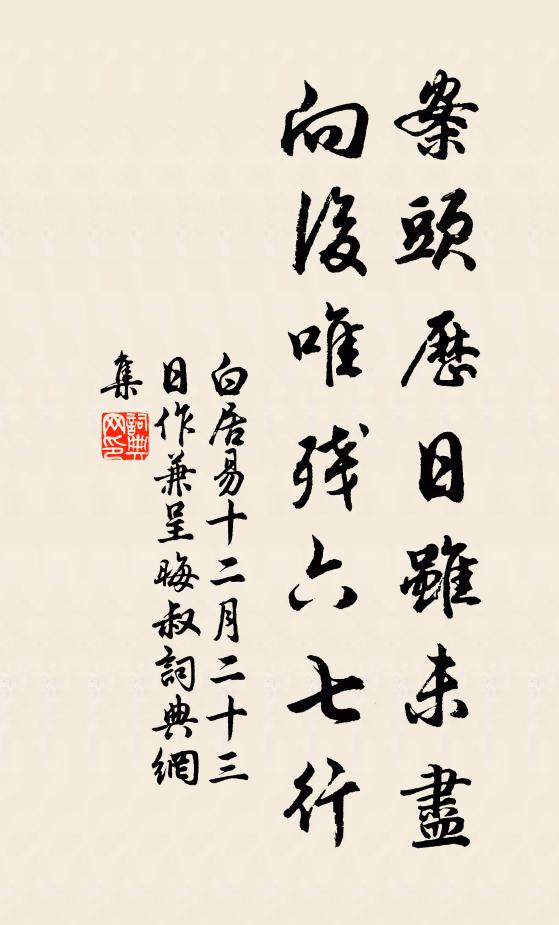 案頭歷日雖未盡
向後唯残六七行
白居易十二月二十三
日作兼呈晦叔詞典網
集
詞典
网印